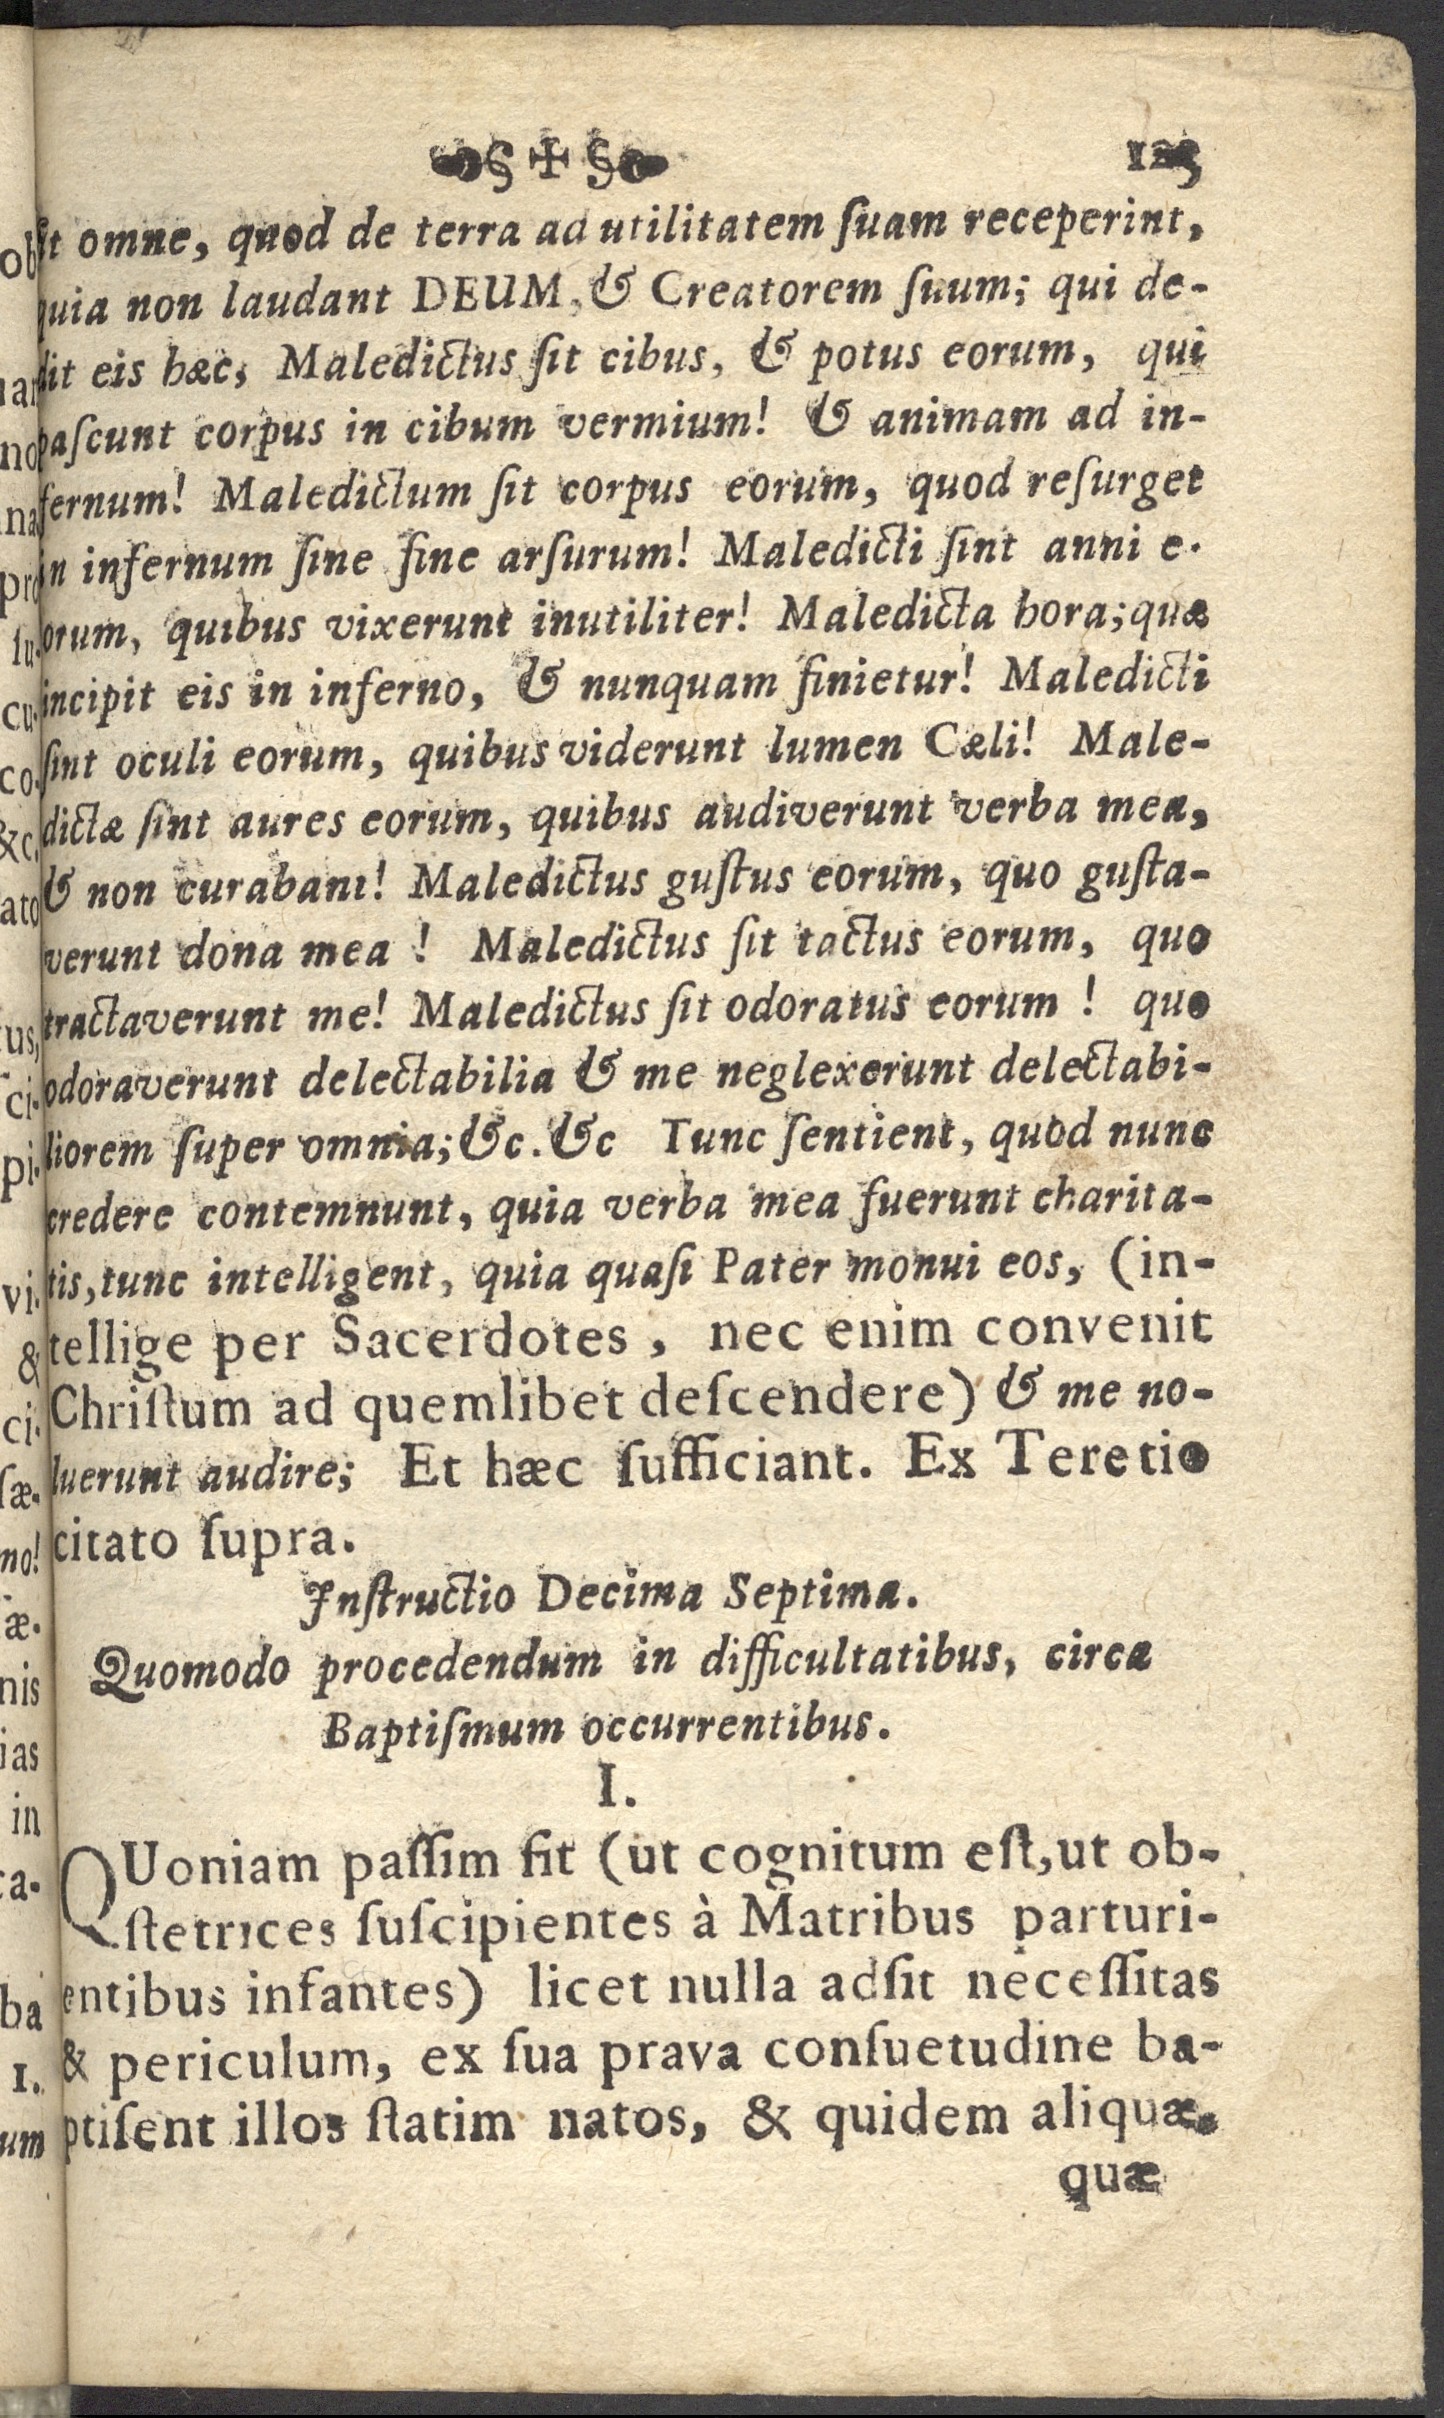 § ✠ § 125
ſit omne, quod de terra ad utilitatem ſuam receperint,
quia non laudant DEUM, & Creatorem ſuum; qui de-
dit eis hæc, Maledictus ſit cibus, & potus eorum, qui
paſcunt corpus in cibum vermium! & animam ad in-
fernum! Maledictum ſit corpus eorum, quod reſurget
in infernum ſine fine arſurum! Maledicti ſint anni e-
orum, quibus vixerunt inutiliter! Maledicta hora; quæ
incipit eis in inferno, & nunquam finietur! Maledicti
ſint oculi eorum, quibus viderunt lumen Cæli! Male-
dictæ ſint aures eorum, quibus audiverunt verba mea,
& non curabant! Maledictus guſtus eorum, quo guſta-
verunt dona mea ! Maledictus ſit tactus eorum, quo
tractaverunt me! Maledictus ſit odoratus eorum ! quo
odoraverunt delectabilia & me neglexerunt delectabi-
liorem ſuper omnia; &c. &c Tunc ſentient, quod nunc
credere contemnunt, quia verba mea fuerunt charita-
tis, tunc intelligent, quia quaſi Pater monui eos, (in-
tellige per Sacerdotes , nec enim convenit
Chriſtum ad quemlibet deſcendere) & me no-
luerunt audire; Et hæc ſufficiant. Ex Teretio
citato ſupra.
Inſtructio Decima Septima.
Quomodo procedendum in difficultatibus, circa
Baptiſmum occurrentibus.
I.
QUoniam paſſim fit (ut cognitum eſt, ut ob-
ſtetrices ſuſcipientes à Matribus parturi-
entibus infantes) licet nulla adſit neceſſitas
& periculum, ex ſua prava conſuetudine ba-
ptiſent illos ſtatim natos, & quidem aliquæ.
quæ